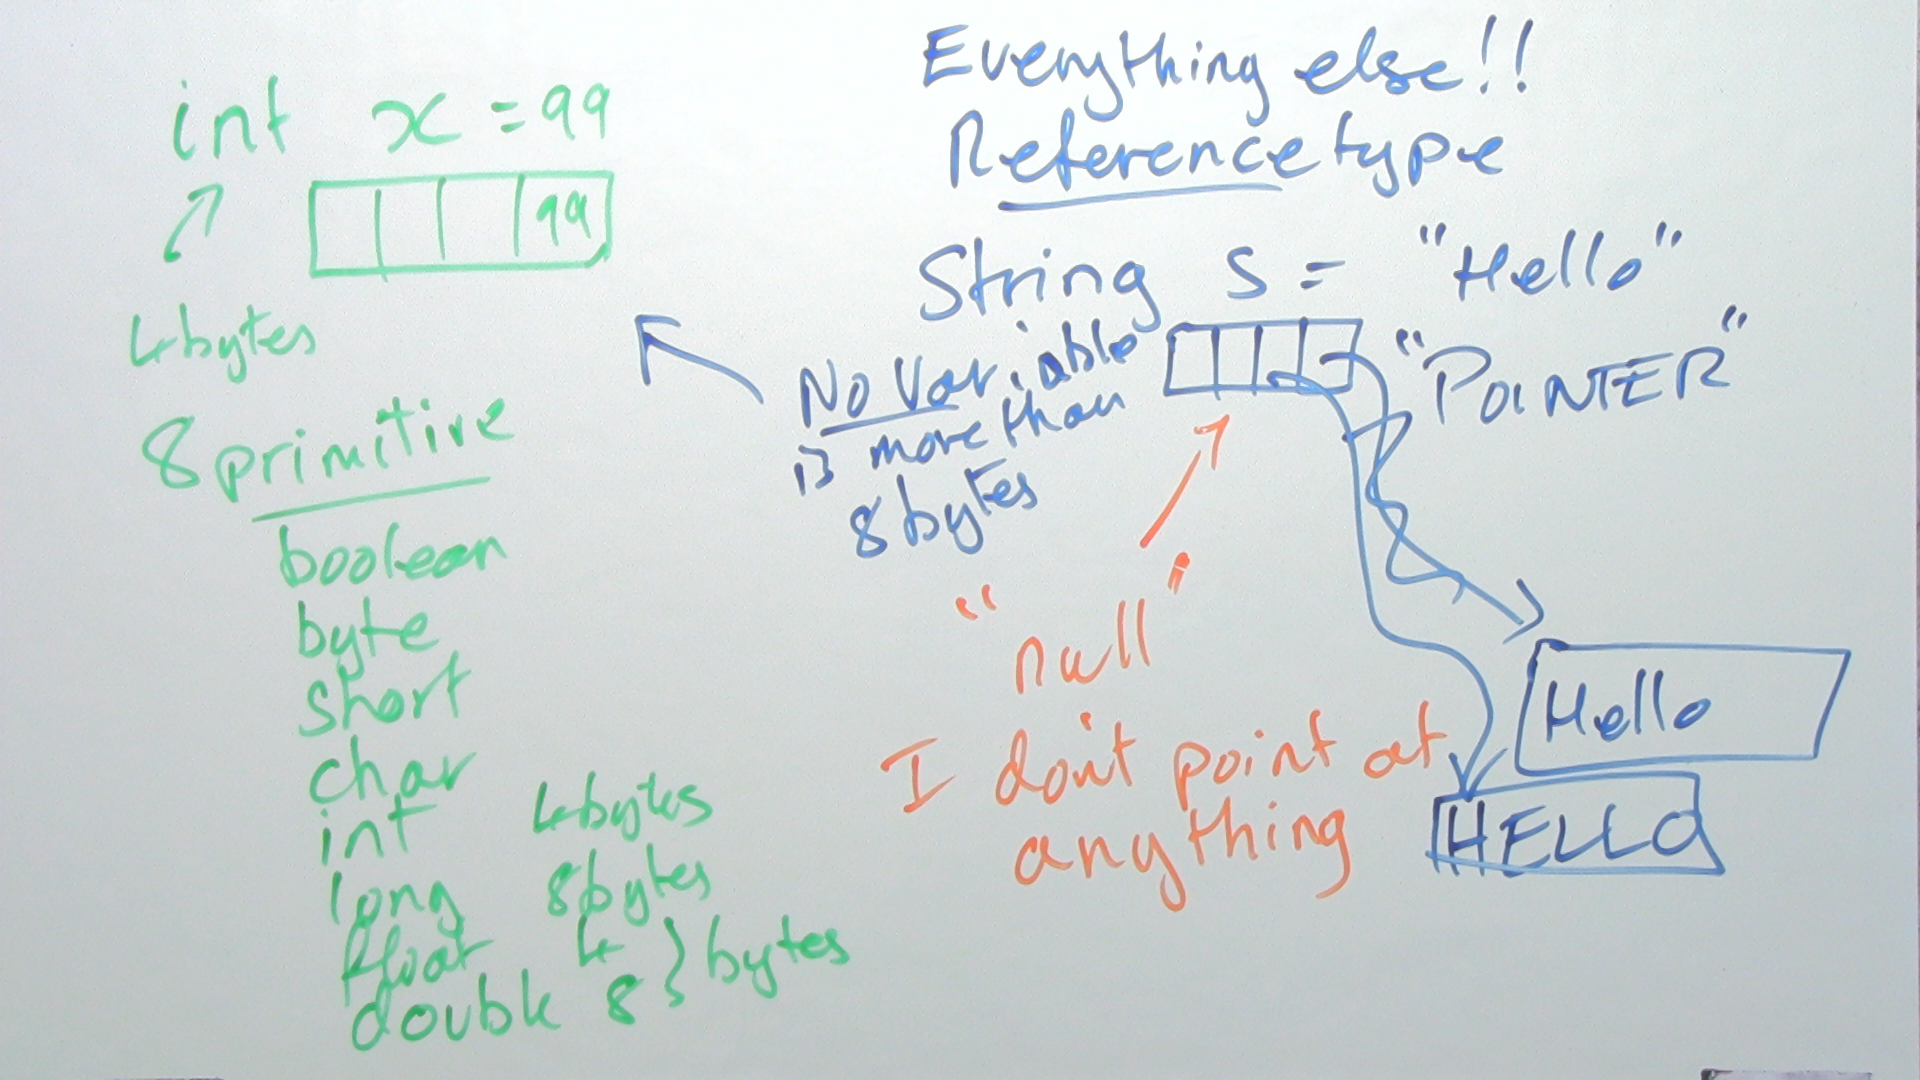 int x = 99
99
4bytes
8 primitive
boolean
byte
short
char
int 4bytes
long 8bytes
float 4
double 8 } bytes
Everything else!!
Reference type
String s = "Hello"
"POINTER"
No Variable
is more than
8 bytes
"null"
I don't point at
anything
Hello
HELLO